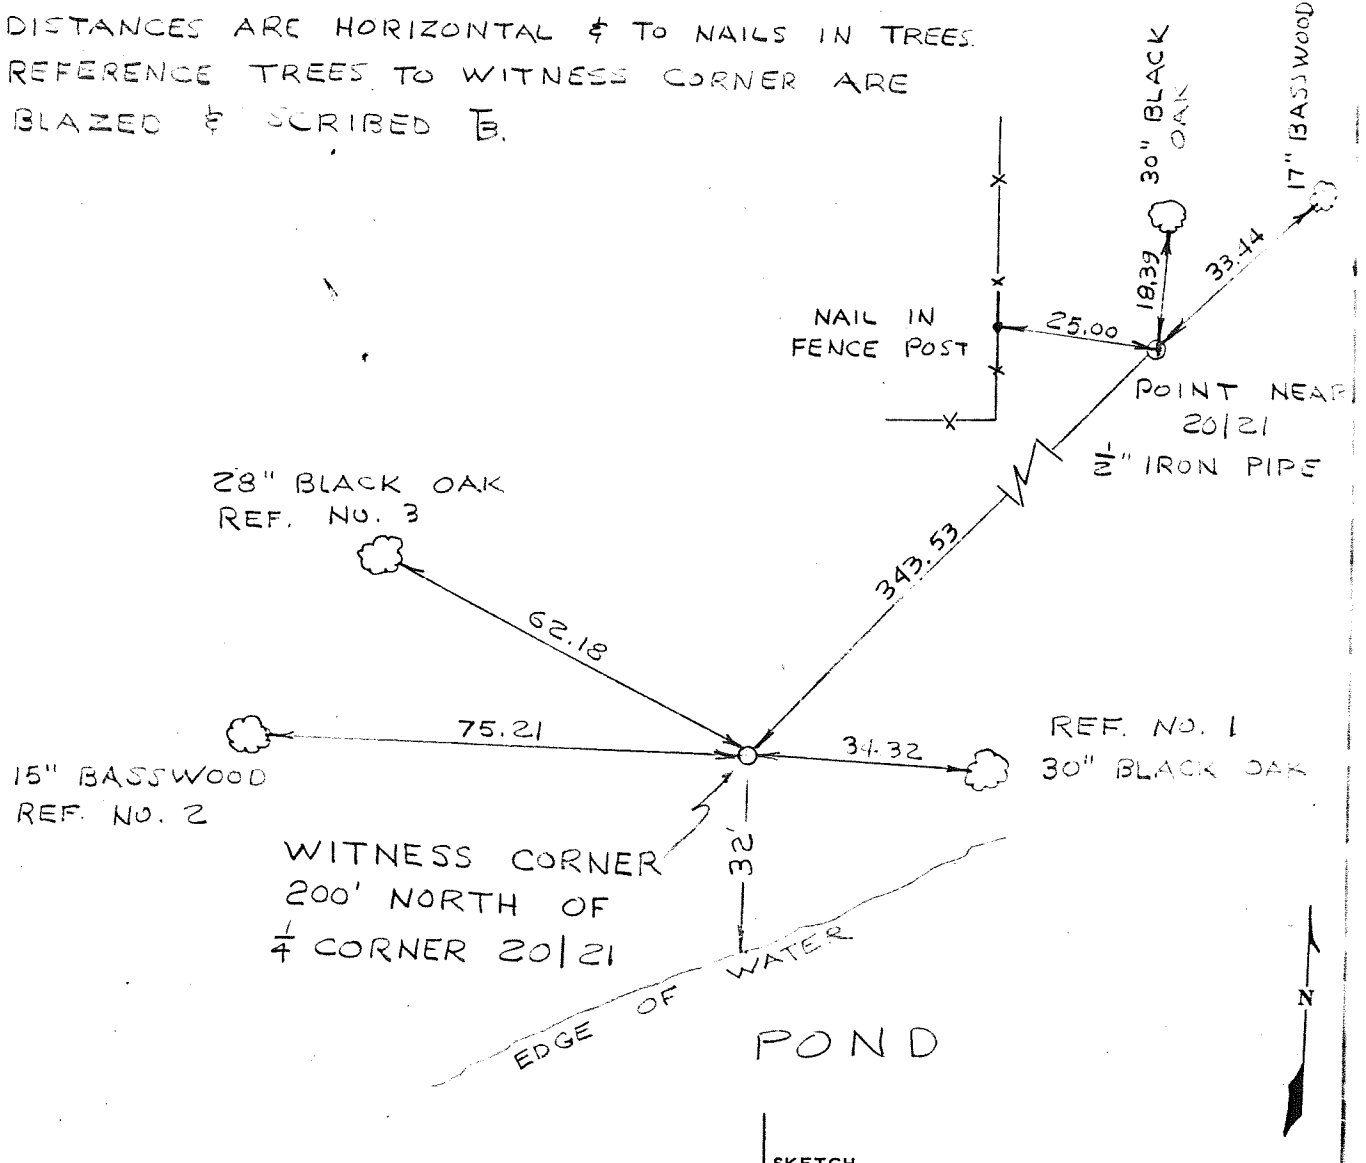 DISTANCES ARE HORIZONTAL & TO NAILS IN TREES.
REFERENCE TREES TO WITNESS CORNER ARE
BLAZED & SCRIBED TB.
30" BLACK
OAK
17" BASSWOOD
18.39
33.44
NAIL IN
FENCE POST
25.00
POINT NEAR
20/21
1/2" IRON PIPE
28" BLACK OAK
REF. NO. 3
343.53
62.18
75.21
34.32
REF. NO. 1
30" BLACK OAK
15" BASSWOOD
REF. NO. 2
32'
WITNESS CORNER
200' NORTH OF
1/4 CORNER 20/21
EDGE OF WATER
POND
N
SKETCH